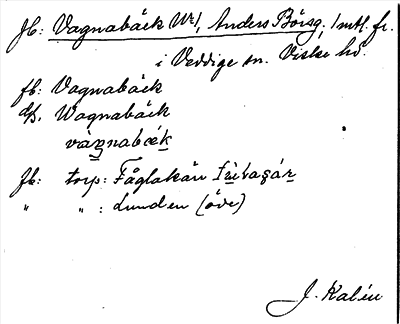 Jb: Vagnabäck Nr 1, Anders Börsg; 1 mtl. fr.
i Veddige sn. Viske hd.
fb: Vagnabäck
ds. Wagnabäck
vàgnabæk
Jb: torp: Fåglakån
" " : Lunden (öde)
J. Kalén